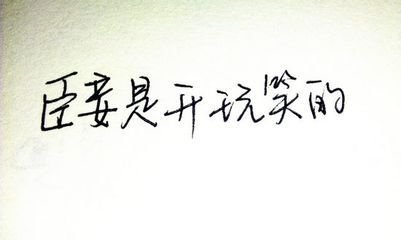 臣妾是开玩笑的